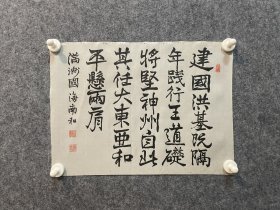 建國洪基既隔
年践行王道礎
將堅神州自此
其任大東亜和
平懸兩肩
満洲國 海南和